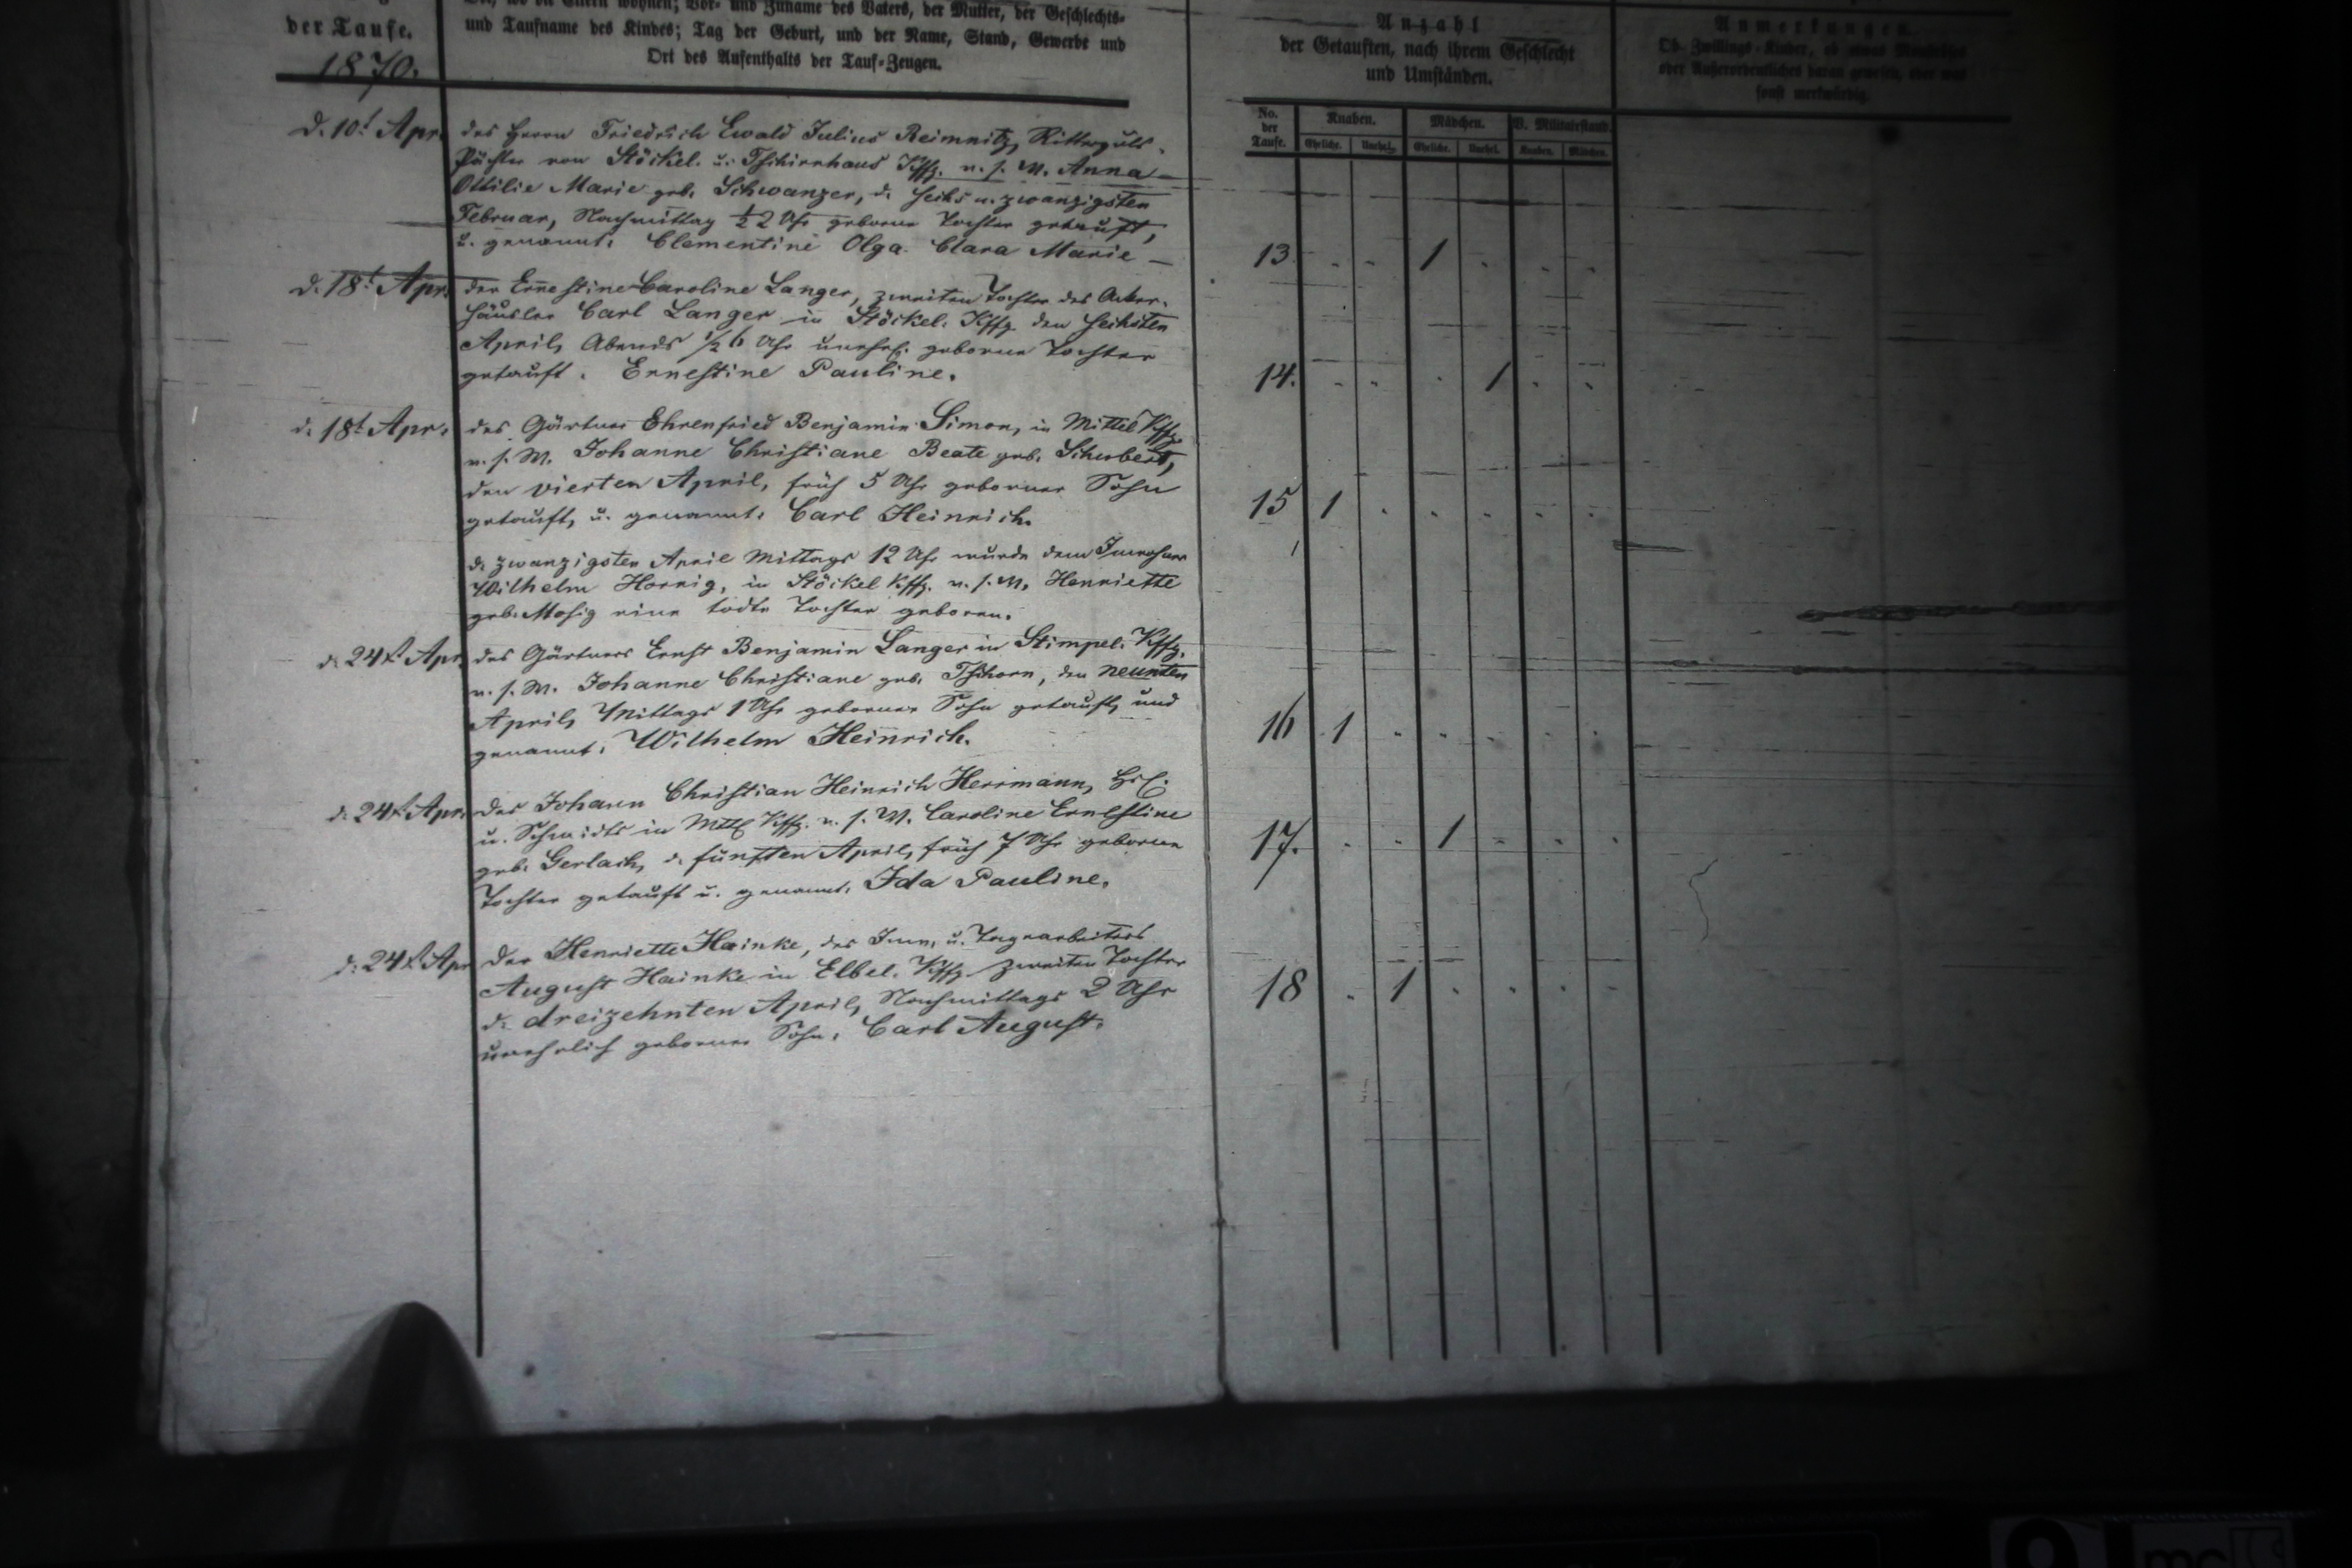 der Taufe.
1870.
und Taufname des Kindes; Tag der Geburt, und der Name, Stand, Gewerbe und
Ort des Aufenthalts der Tauf-Zeugen.
Anzahl
der Getauften, nach ihrem Geschlecht
und Umständen.
Anmerkungen.
Ob Zwillings-Kinder, ob etwas
oder Außerordentliches daran gewesen, oder was
sonst merkwürdig.
No. der Taufe.
Knaben.
Mädchen.
V. Militairstand.
Eheliche.
Unehel.
Eheliche.
Unehel.
Knaben.
Mädchen.
d. 10t Apr.
des Herrn Friedrich Ewald Julius Reimnitz, Ritterguts-
Pächter von Stöckel. u. Tschirnhaus Kffg. u. s. W. Anna
Ottilie Marie geb. Schwanzer, d. sechs u. zwanzigsten
Februar, Nachmittag ½2 Uhr geborne Tochter getauft,
u. genannt: Clementine Olga Clara Marie —
13 1
d. 18t Apr.
der Ernestine Caroline Langer, zweiten Tochter des Acker-
häusler Carl Langer in Stöckel. Kffg. den sechsten
April, Abends ½6 Uhr unehel. geborne Tochter
getauft. Ernestine Pauline.
14. 1
d. 18t Apr.
des Gärtner Ehrenfried Benjamin Simon, in Mittel Kffg.
u. s. W. Johanne Christiane Beate geb. Schubert,
den vierten April, früh 5 Uhr geborner Sohn
getauft, u. genannt: Carl Heinrich.
15 1
d. zwanzigsten April Mittags 12 Uhr wurde dem Inwohner
Wilhelm Hornig, in Stöckel Kffg. u. s. W. Henriette
geb. Mosig eine todte Tochter geboren.
d. 24t Apr.
des Gärtners Ernst Benjamin Langer in Stimpel. Kffg.
u. s. W. Johanne Christiane geb. Tschorn, den neunten
April, Mittags 1 Uhr geborner Sohn getauft, und
genannt: Wilhelm Heinrich.
16 1
d. 24t Apr.
des Johann Christian Heinrich Herrmann,
u. Schmidts in Mttl Kffg. u. s. W. Caroline Ernestine
geb. Gerlach, d. fünften April, früh 7 Uhr geborne
Tochter getauft u. genannt: Ida Pauline.
17. 1
d. 24t Apr
der Henriette Hainke, des Inw. u. Tagearbeiters
August Hainke in Elbel. Kffg. zweiten Tochter
d. dreizehnten April, Nachmittags 2 Uhr
unehelich geborner Sohn: Carl August.
18 1